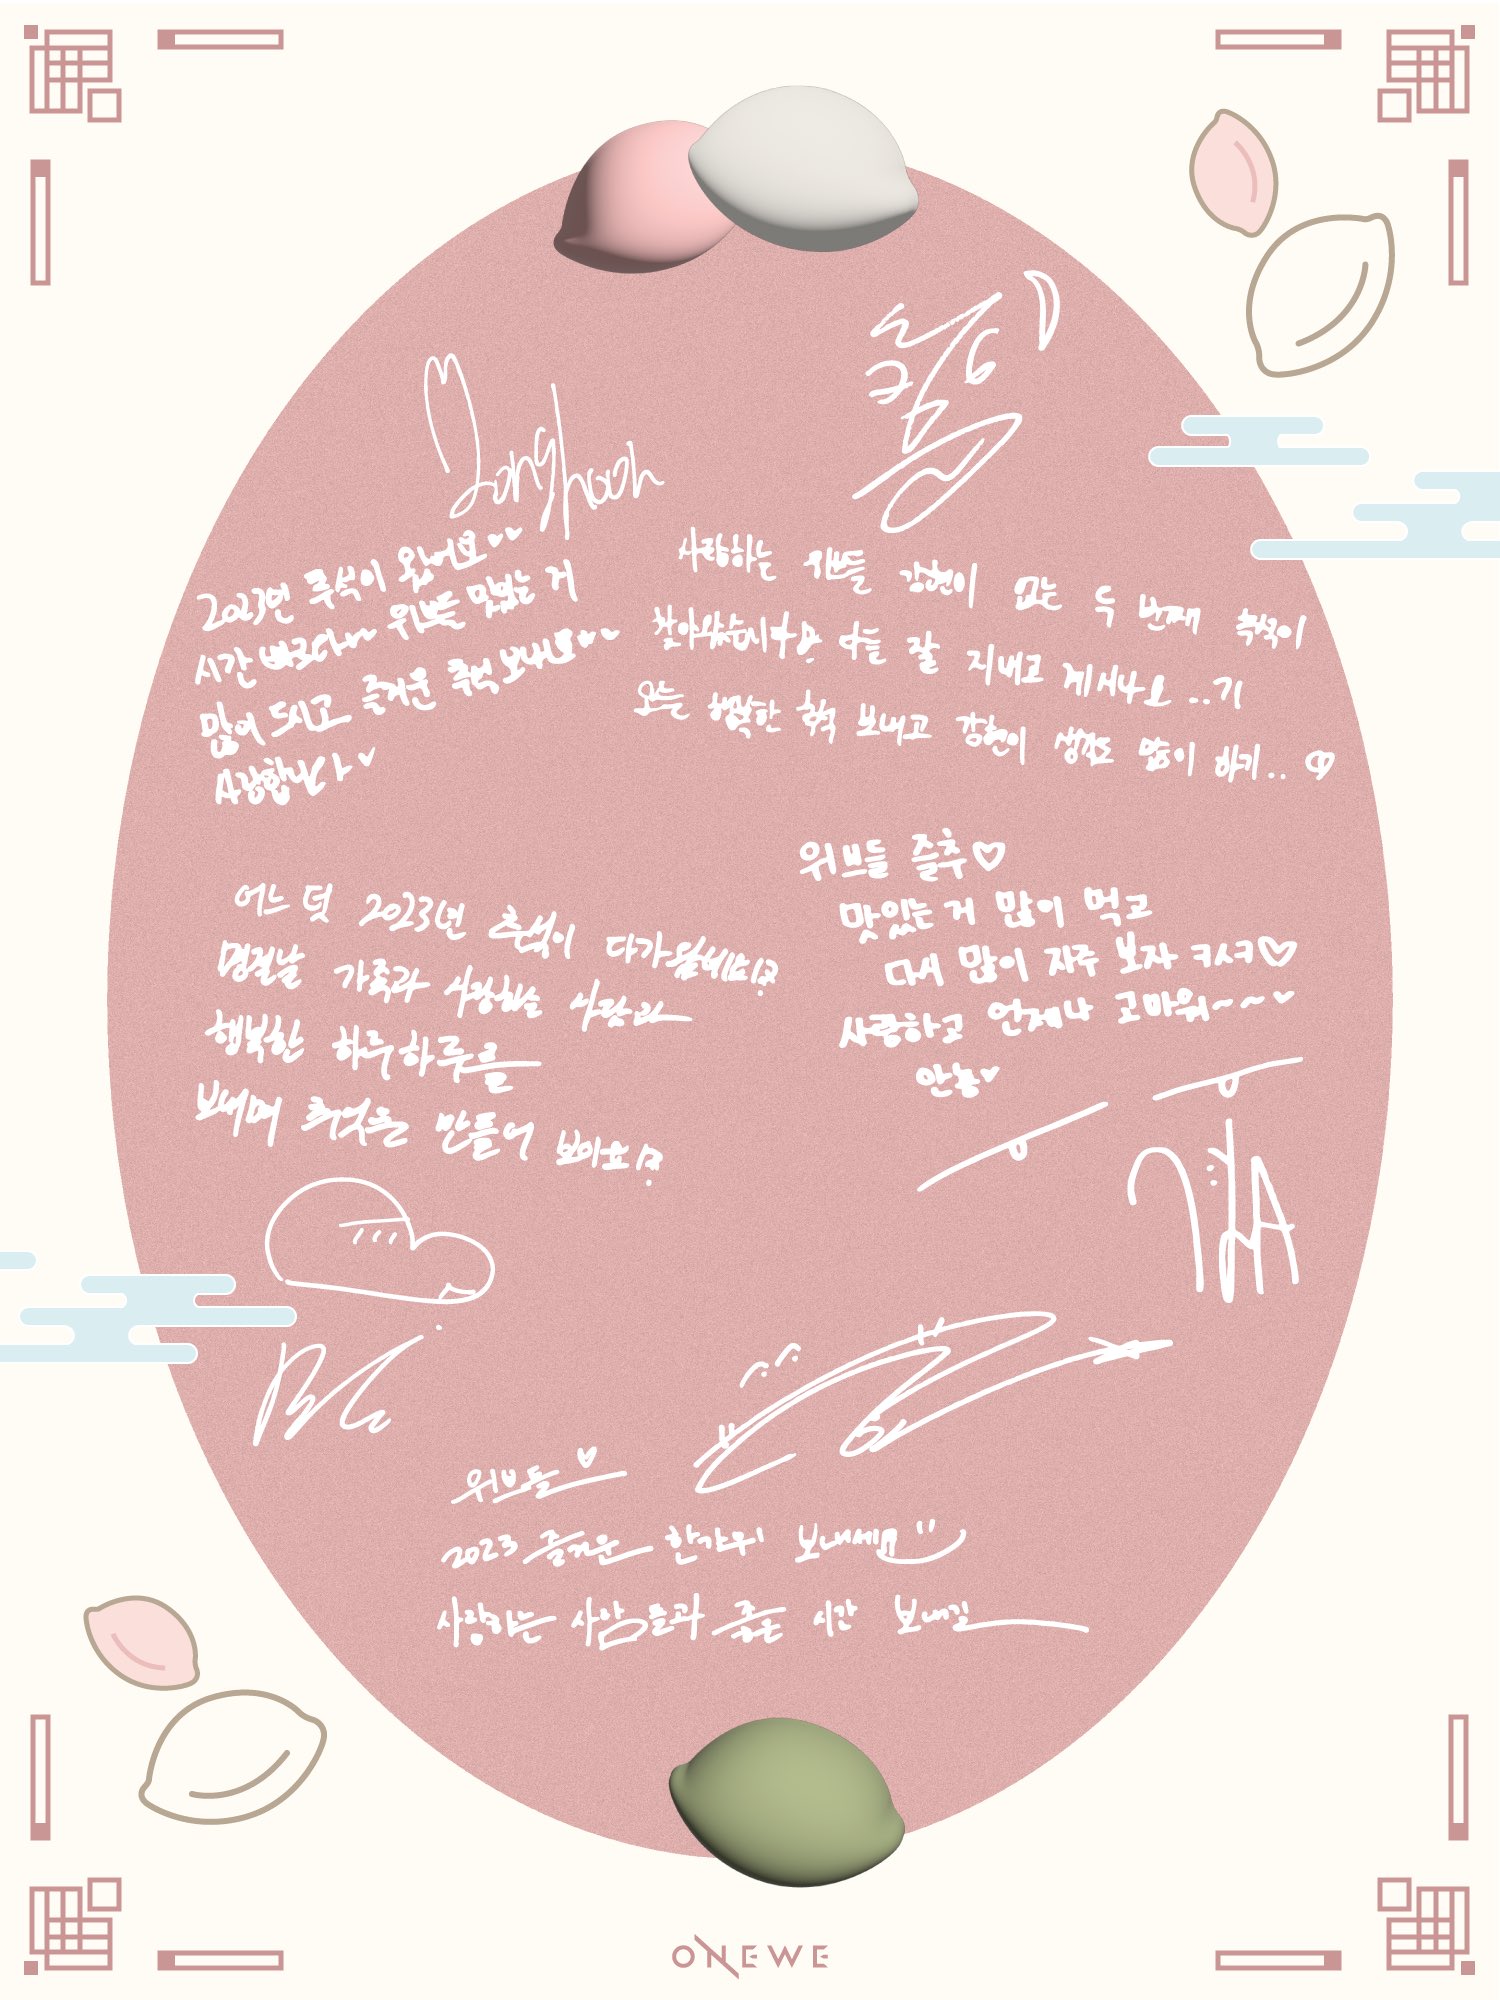 Yonghoon
2023년 추석이 왔어요
시간 빠르다~ 위브들 맛있는 거
많이 드시고 즐거운 추석 보내요
사랑합니다
사랑하는 위브들 강현이 없는 두 번째 추석이
찾아왔습니다 다들 잘 지내고 계시나요 ..기
오늘 행복한 추석 보내고 강현이 생각도 많이 하기..
어느 덧 2023년 추석이 다가왔네요!?
명절날 가족과 사랑하는 사람과
행복한 하루하루를
보내며 추억을 만들어 보아요!?
위브들 즐추♡
맛있는 거 많이 먹고
다시 많이 자주 보자 ㅋㅅㅋ♡
사랑하고 언제나 고마워~~
안뇽
위브들
2023 즐거운 한가위 보내세요
사랑하는 사람들과 좋은 시간 보내길
ONEWE